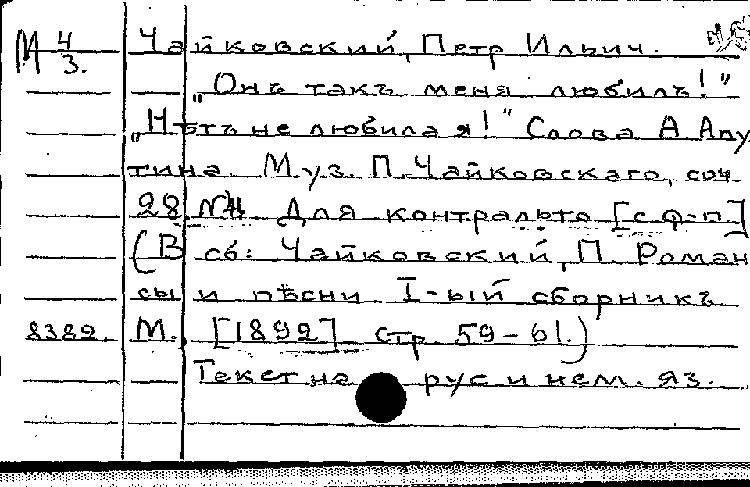 М 4/3. Чайковский, Петр Ильич.
„Онъ такъ меня любилъ!"
„Нѣтъ не любила я!" Слова А Апу
тина Муз. П. Чайковскаго, соч
28 №4 Для контральто [с ф-п]
(В сб: Чайковский, П. Роман
сы и пѣсни I-ый сборникъ
8382. М. [1892] стр 59-61.)
Текст на рус и нем. яз.